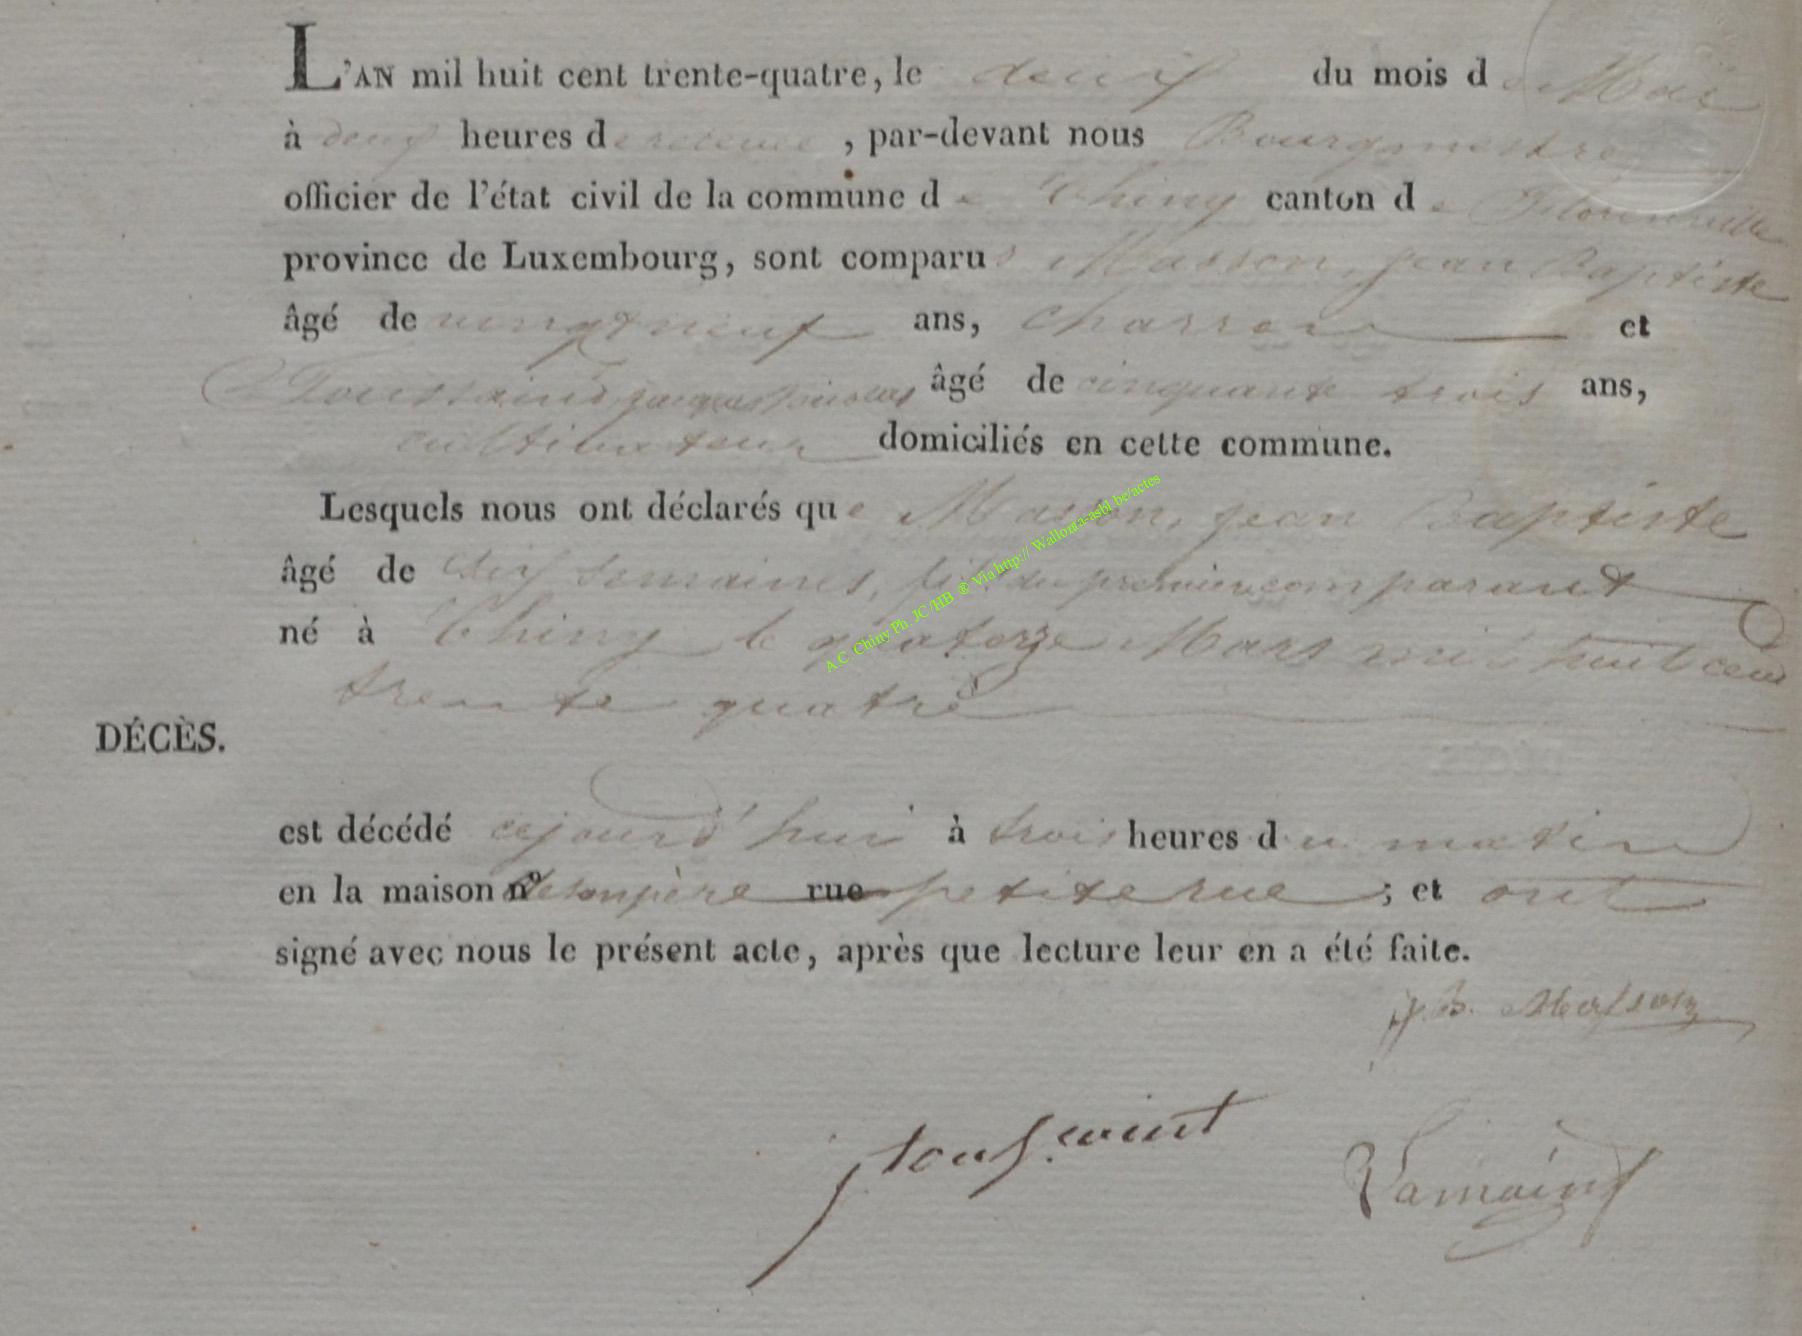 L'AN mil huit cent trente-quatre, le deux du mois de Mai
à deux heures de relevée, par-devant nous Bourgmestre
officier de l'état civil de la commune de Chiny canton de Florenville
province de Luxembourg, sont comparus Masson, jean Baptiste
âgé de vingt neuf ans, charron et
Toussaint jacques Nicolas âgé de cinquante trois ans,
cultivateur domiciliés en cette commune.
Lesquels nous ont déclarés que Masson, jean Baptiste
âgé de semaines, fils du premier comparant
né à Chiny le quatorze Mars mil huit cent
trente quatre
DÉCÈS.
est décédé cejourd'hui à trois heures du matin
en la maison n° de son père rue petite rue ; et ont
signé avec nous le présent acte, après que lecture leur en a été faite.
J. B. Masson
jtoussaint
A.C. Chiny Ph. JC/HB ® Via http:// Wallonia-asbl.be/actes